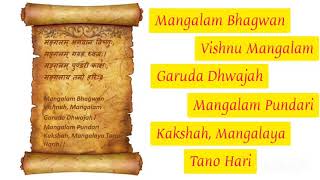 मङ्गलम् भगवान विष्णुः
मङ्गलम् गरुड ध्वजः।
मङ्गलम् पुण्डरी काक्षः
मङ्गलाय तनो हरिः॥
Mangalam Bhagwan
Vishnuh, Mangalam
Garuda Dhwajah।
Mangalam Pundari
Kakshah, Mangalaya Tano
Harih||
Mangalam Bhagwan
Vishnu Mangalam
Garuda Dhwajah
Mangalam Pundari
Kakshah, Mangalaya
Tano Hari